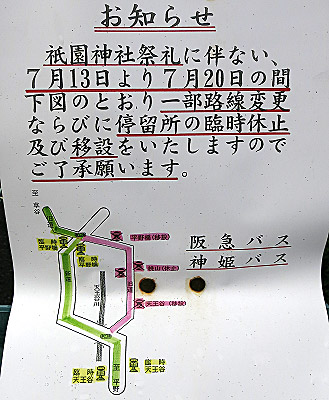 お知らせ
祇園神社祭礼に伴ない、
7月13日より7月20日の間
下図のとおり一部路線変更
ならびに停留所の臨時休止
及び移設をいたしますので
ご了承願います。
阪急バス
神姫バス
至
臨時
平野橋
平野橋(移設)
天王谷川
天王谷(移設)
臨時
天王谷
至
平野
臨時
天王谷